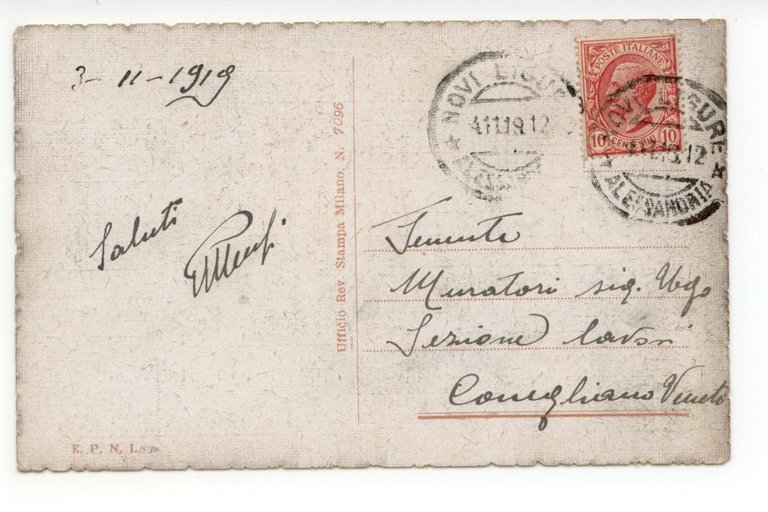 3-11-1919
NOVI LIGURE
4.11.19.12
ALESSANDRIA
POSTE ITALIANE
10 CENTESIMI 10
NOVI LIGURE
4.11.19.12
ALESSANDRIA
Saluti
Ufficio Rev. Stampa Milano, N. 7096
Tenente
Muratori sig. Ugo
Sezione lavori
Conegliano Veneto
E. P. N. I.